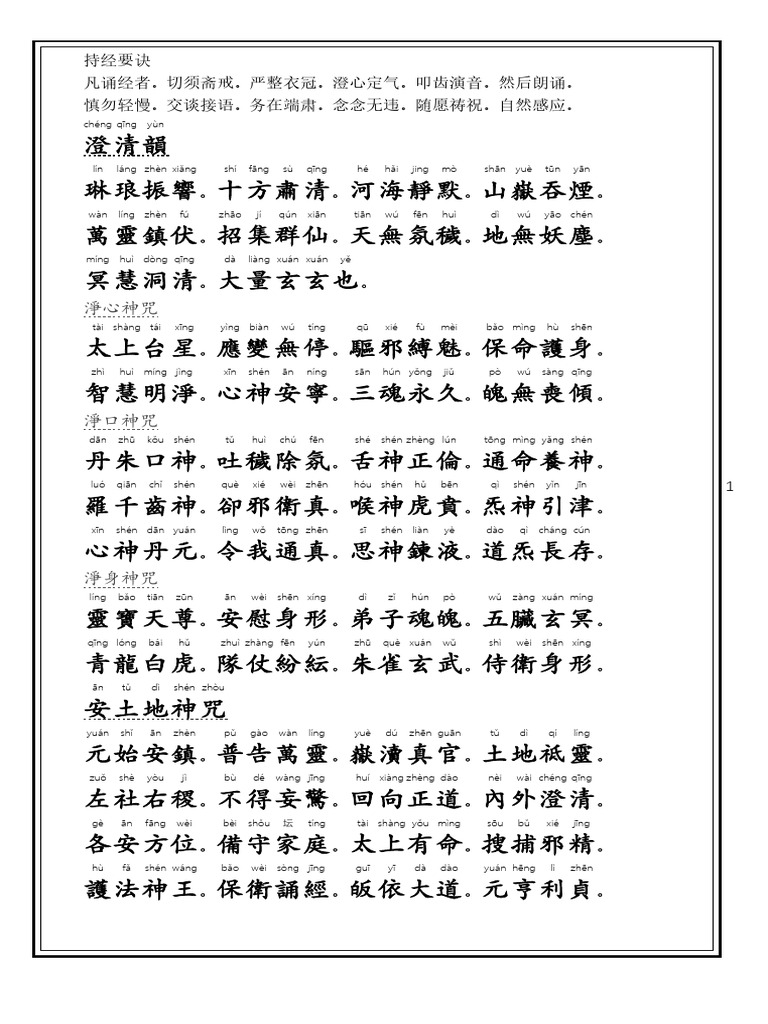 持经要诀
凡诵经者。切须斋戒。严整衣冠。澄心定气。叩齿演音。然后朗诵。
慎勿轻慢。交谈接语。务在端肃。念念无违。随愿祷祝。自然感应。
chéng qīng yùn
澄清韻
lín láng zhèn xiǎng shí fāng sù qīng hé hǎi jìng mò shān yuè tūn yān
琳琅振響。十方肅清。河海靜默。山嶽吞煙。
wàn líng zhèn fú zhāo jí qún xiān tiān wú fēn huì dì wú yāo chén
萬靈鎮伏。招集群仙。天無氛穢。地無妖塵。
míng huì dòng qīng dà liàng xuán xuán yě
冥慧洞清。大量玄玄也。
淨心神咒
tài shàng tái xīng yìng biàn wú tíng qū xié fù mèi bǎo mìng hù shēn
太上台星。應變無停。驅邪縛魅。保命護身。
zhì huì míng jìng xīn shén ān níng sān hún yǒng jiǔ pò wú sàng qīng
智慧明淨。心神安寧。三魂永久。魄無喪傾。
淨口神咒
dān zhū kǒu shén tǔ huì chú fēn shé shén zhèng lún tōng mìng yǎng shén
丹朱口神。吐穢除氛。舌神正倫。通命養神。
luó qiān chǐ shén què xié wèi zhēn hóu shén hǔ bēn qì shén yǐn jīn
羅千齒神。卻邪衛真。喉神虎賁。炁神引津。
xīn shén dān yuán lìng wǒ tōng zhēn sī shén liàn yè dào qì cháng cún
心神丹元。令我通真。思神鍊液。道炁長存。
淨身神咒
líng bǎo tiān zūn ān wèi shēn xíng dì zǐ hún pò wǔ zàng xuán míng
靈寶天尊。安慰身形。弟子魂魄。五臟玄冥。
qīng lóng bái hǔ zhuì zhàng fēn yún zhū què xuán wǔ shì wèi shēn xíng
青龍白虎。隊仗紛紜。朱雀玄武。侍衛身形。
ān tǔ dì shén zhòu
安土地神咒
yuán shí ān zhèn pǔ gào wàn líng yuè dú zhēn guān tǔ dì qí líng
元始安鎮。普告萬靈。嶽瀆真官。土地祇靈。
zuǒ shè yòu jì bù dé wàng jīng huí xiàng zhèng dào nèi wài chéng qīng
左社右稷。不得妄驚。回向正道。內外澄清。
gè ān fāng wèi bèi shǒu 坛 tíng tài shàng yǒu mìng sōu bǔ xié jīng
各安方位。備守家庭。太上有命。搜捕邪精。
hù fǎ shén wáng bǎo wèi sòng jīng guī yī dà dào yuán hēng lì zhēn
護法神王。保衛誦經。皈依大道。元亨利貞。
1